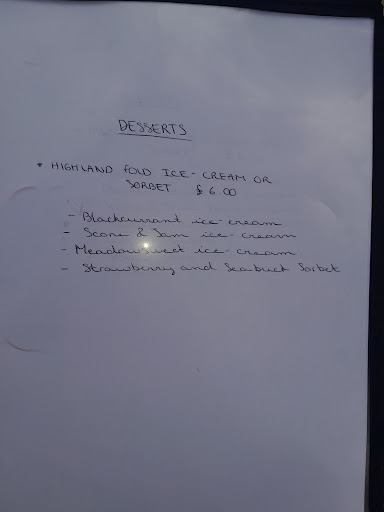 DESSERTS
* HIGHLAND FOLD ICE-CREAM OR
SORBET £ 6.00
- Blackcurrant ice-cream
- Scone & Jam ice-cream
- Meadowsweet ice-cream
- Strawberry and Seabuck Sorbet